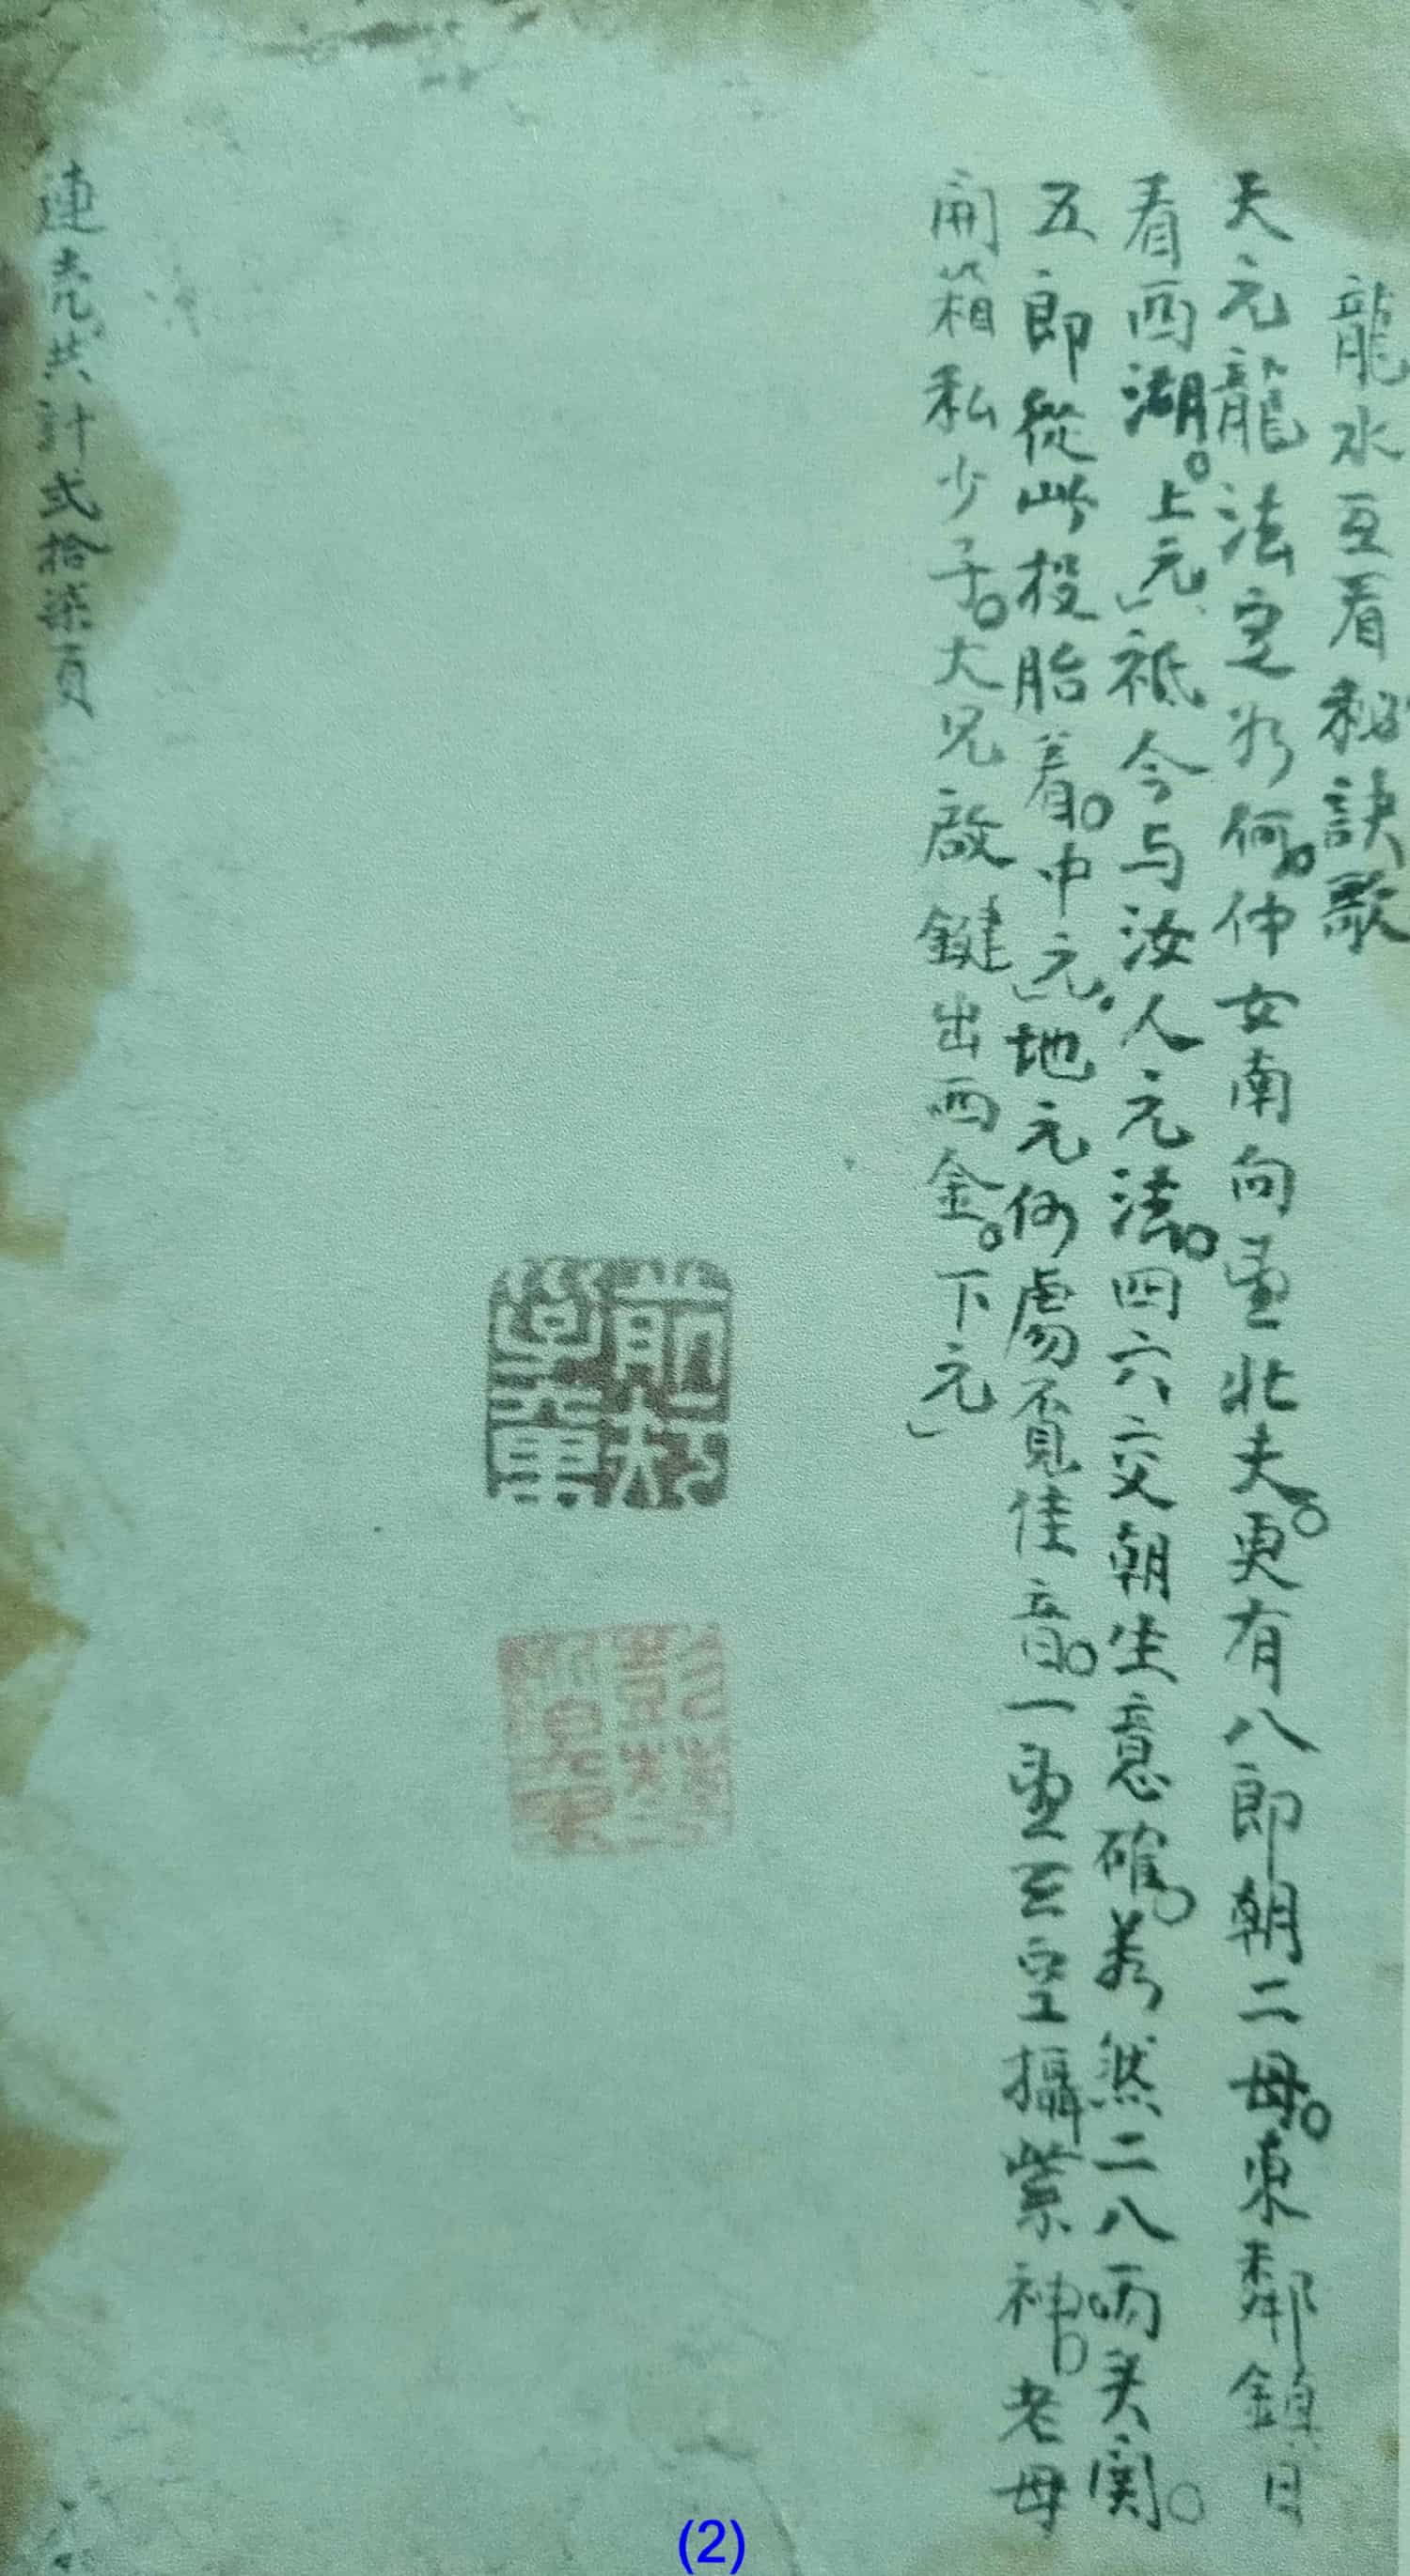 龍水互看秘訣歌
天元龍法定如何。仲女南向重北夫。更有八郎朝二母。東鄰鎮日
看西湖。上元」祗今与汝人元法。四六交朝生意確。若然二八両关阂。
五郎從此投胎着。中元」地元何處覓佳音。一重三空攝紫神。老母
開箱私少子。大兄啟鍵出西金。下元」
連壳共計弍拾柒頁
(2)